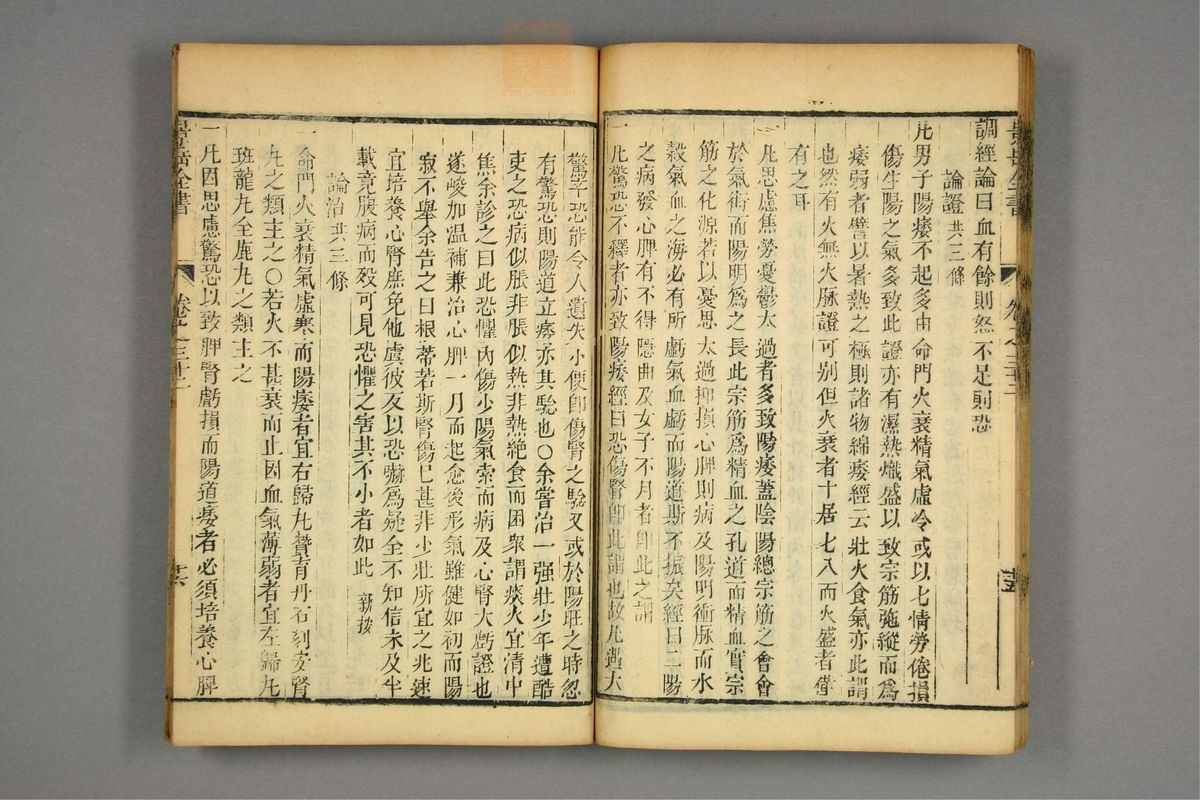 景岳全書 卷之三十二 廿五
調經論曰血有餘則怒不足則恐
論證共三條
凢男子陽痿不起多由命門火衰精氣虛冷或以七情勞倦損
傷生陽之氣多致此證亦有濕熱熾盛以致宗筋弛縱而爲
痿弱者譬以暑熱之極則諸物綿痿經云壯火食氣亦此謂
也然有火無火脉證可别但火衰者十居七八而火盛者僅
有之耳
凢思慮焦勞憂鬱太過者多致陽痿蓋陰陽總宗筋之會會
於氣街而陽明爲之長此宗筋爲精血之孔道而精血實宗
筋之化源若以憂思太過抑損心脾則病及陽明衝脉而水
穀氣血之海必有所虧氣血虧而陽道斯不振矣經曰二陽
之病發心脾有不得隱曲及女子不月者卽此之謂
一凢驚恐不釋者亦致陽痿經曰恐傷腎卽此謂也故凢遇大
驚卒恐能令人遺失小便卽傷腎之驗又或於陽旺之時忽
有驚恐則陽道立痿亦其驗也○余嘗治一强壯少年遭酷
吏之恐病似脹非脹似熱非熱絶食而困衆謂痰火宜清中
焦余診之曰此恐懼内傷少陽氣索而病及心腎大虧證也
遂峻加温補兼治心脾一月而起愈後形氣雖健如初而陽
寂不舉余告之曰根蒂若斯腎傷巳甚非少壯所宜之兆速
宜培養心腎庶免他虞彼反以恐嚇爲疑全不知信未及半
載竟腹病而殁可見恐懼之害其不小者如此 新按
論治共三條
一命門火衰精氣虛寒而陽痿者宜右歸凢贊育丹石刻安腎
凢之類主之○若火不甚衰而止因血氣薄弱者宜左歸凢
班龍凢全鹿凢之類主之
一凢因思慮驚恐以致脾腎虧損而陽道痿者必須培養心脾
景岳全書 卷之三十二 廿六